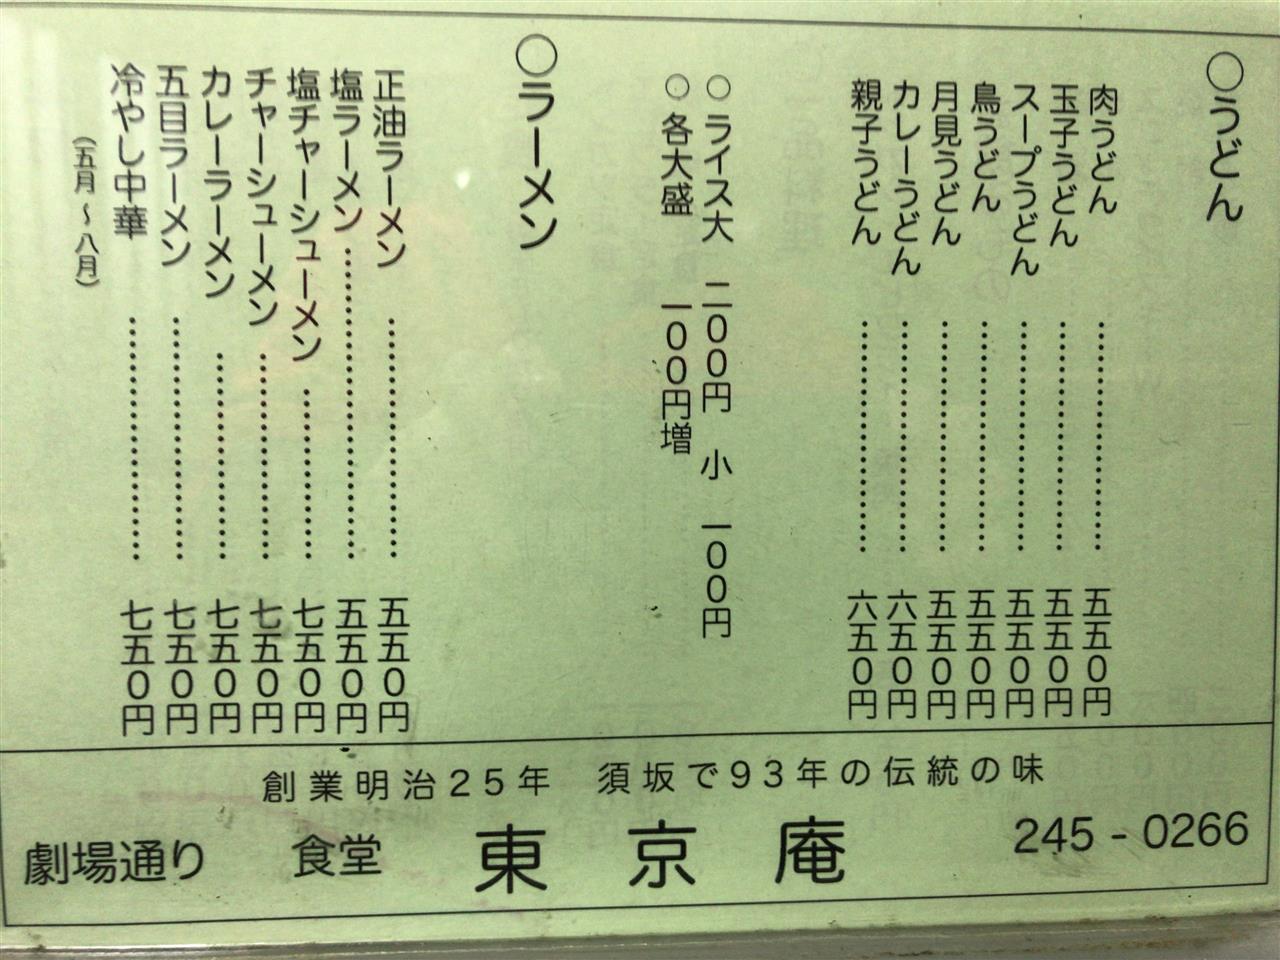 ○うどん
肉うどん……………………五五0円
玉子うどん……………………五五0円
スープうどん……………………五五0円
鳥うどん……………………五五0円
月見うどん……………………五五0円
カレーうどん……………………六五0円
親子うどん……………………六五0円
○ライス大 二00円 小 一00円
○各大盛 一00円増
○ラーメン
正油ラーメン……………………五五0円
塩ラーメン……………………五五0円
塩チャーシューメン……………………七五0円
チャーシューメン……………………七五0円
カレーラーメン……………………七五0円
五目ラーメン……………………七五0円
冷やし中華……………………七五0円
(五月〜八月)
創業明治25年 須坂で93年の伝統の味
劇場通り 食堂 東京庵 245-0266